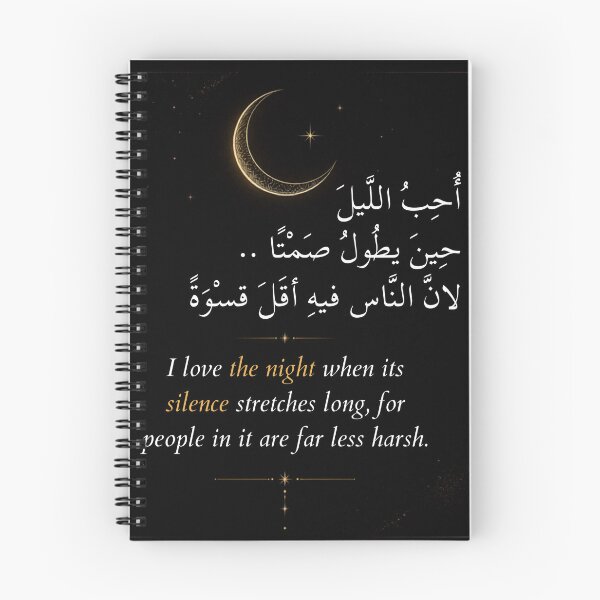 أُحِبُ اللَّيلَ
حِينَ يطُولُ صَمْتًا ..
لانَّ النَّاس فيهِ أقَلَ قسْوَةً
I love the night when its
silence stretches long, for
people in it are far less harsh.